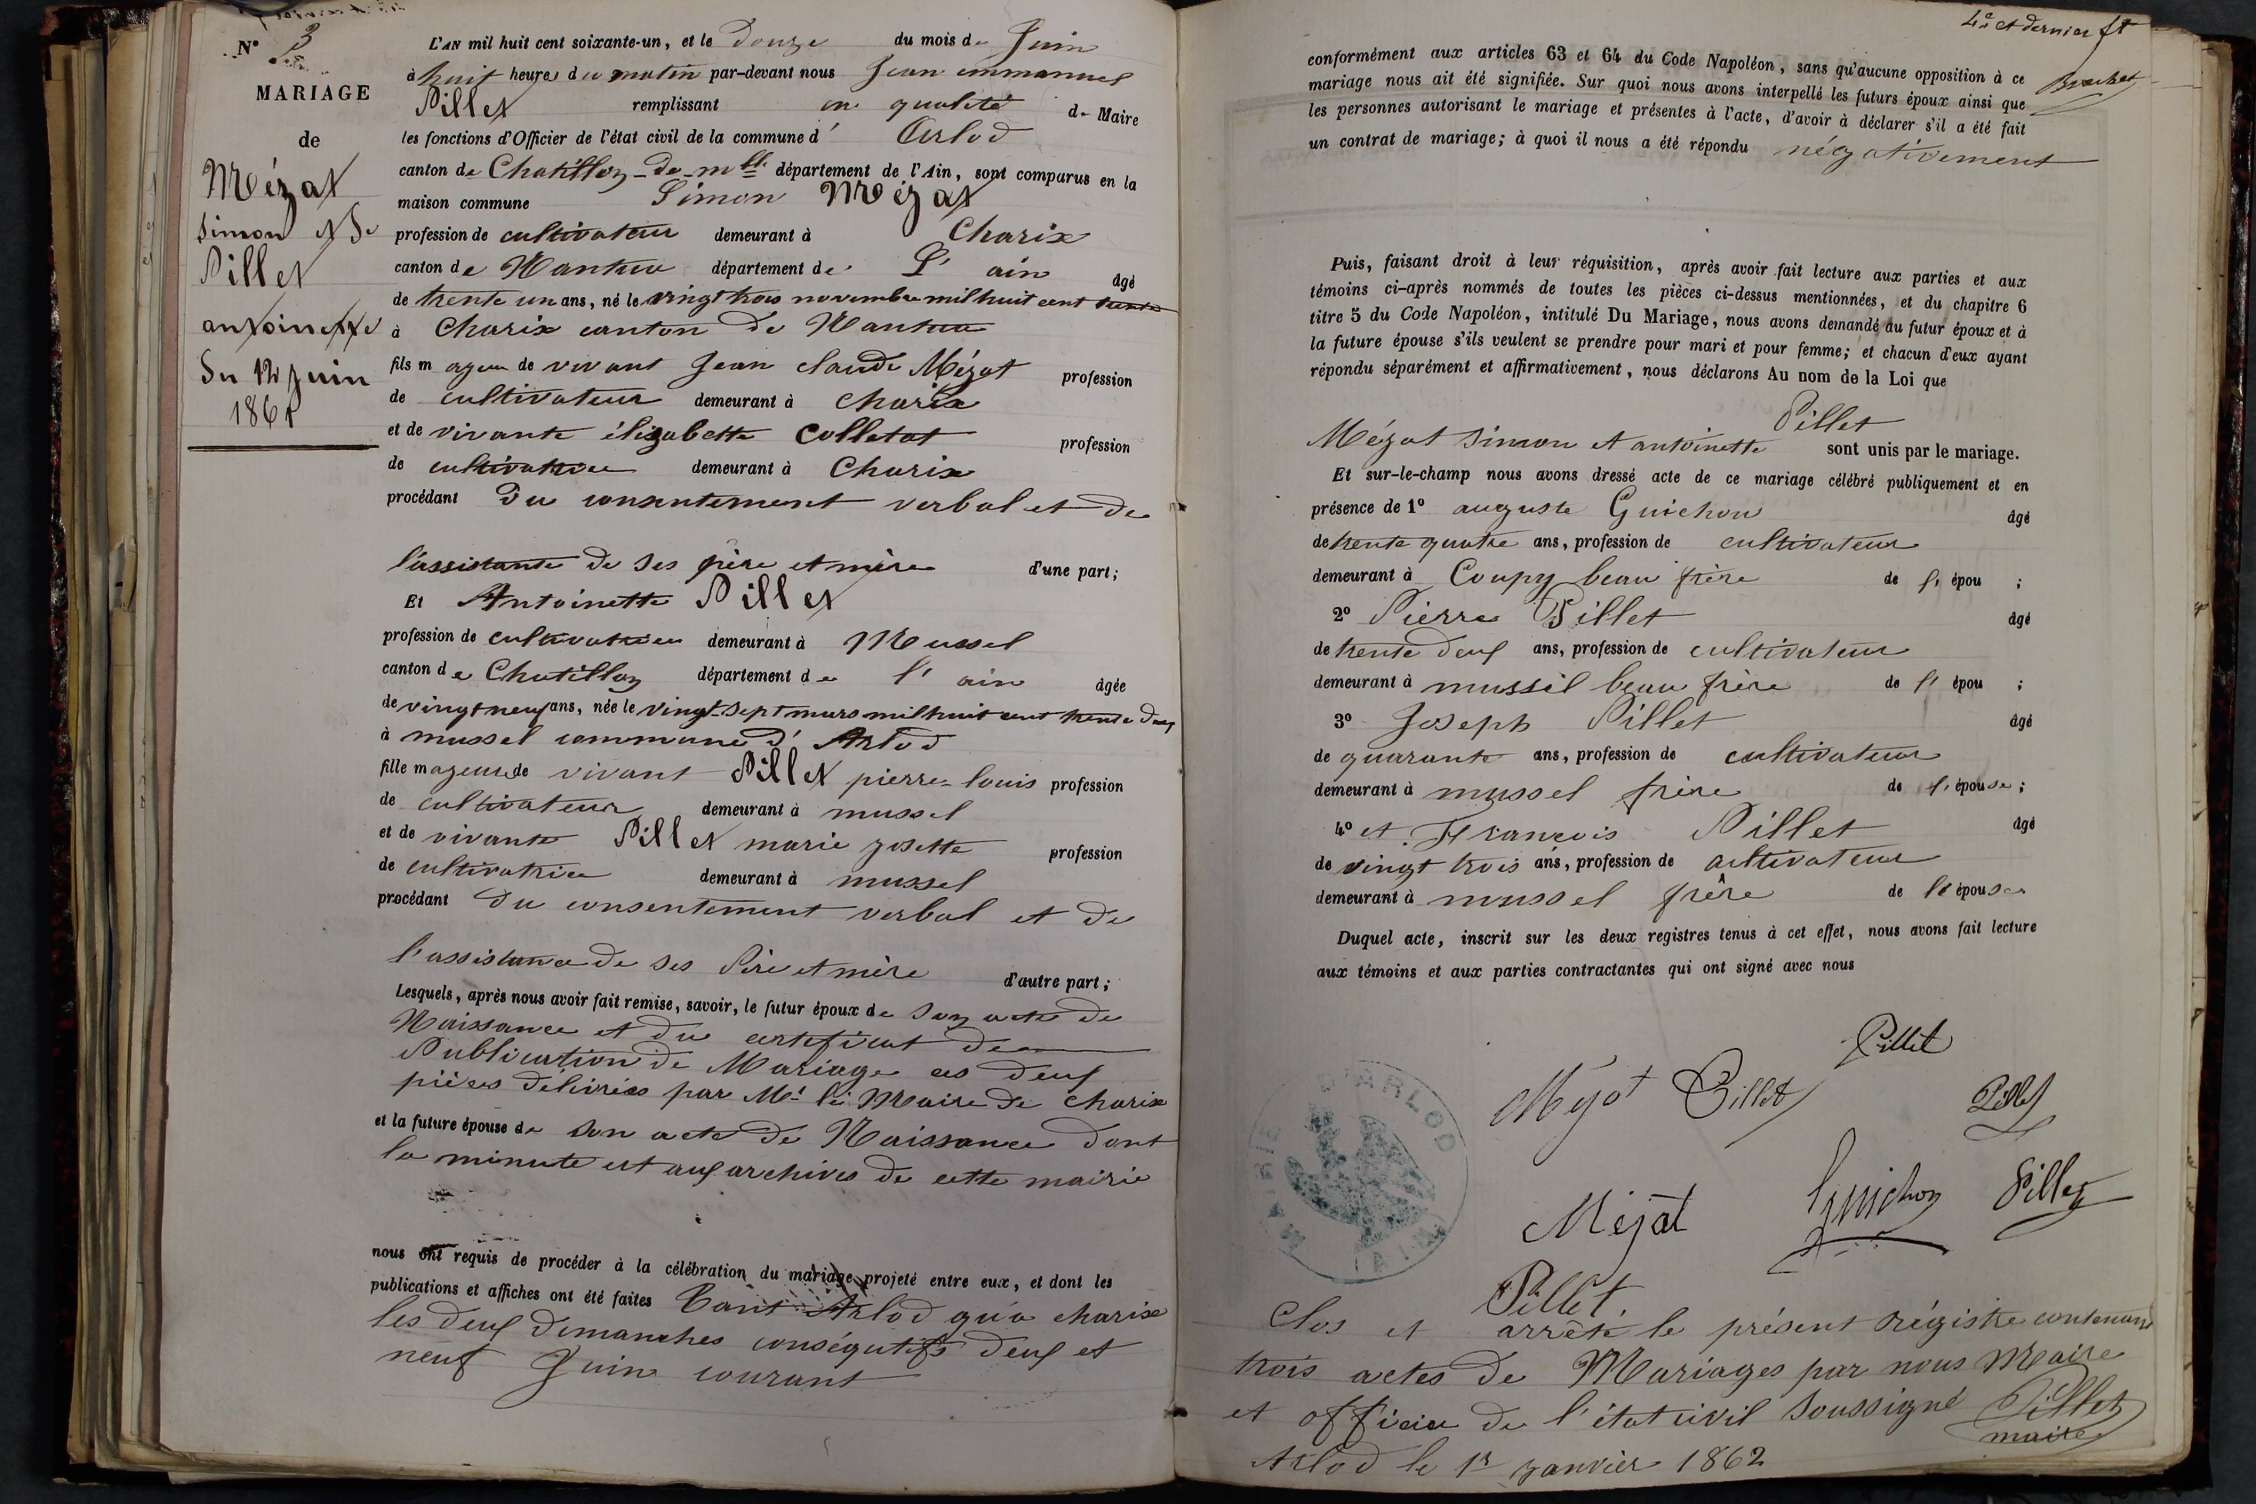 N° 3
MARIAGE
de
Mézat
simon et De
Pillet
antoinette
Du 12 juin
1861
L'AN mil huit cent soixante-un, et le Douze du mois de Juin
à huit heures du matin par-devant nous Jean emmanuel
Pillet remplissant en qualité de Maire
les fonctions d'Officier de l'état civil de la commune d' Arlod
canton de Chatillon-de-mlle département de l'Ain, sont comparus en la
maison commune Simon Mézat
profession de cultivateur demeurant à Charix
canton de Nantua département de L' ain âgé
de trente un ans, né le vingt trois novembre mil huit cent trente
à Charix canton de Nantua
fils majeur de vivant Jean claude Mézat profession
de cultivateur demeurant à charix
et de vivante élizabette Colletat profession
de cultivatrice demeurant à Charix
procédant Du consentement verbal et de
l'assistante de ses père et mère d'une part;
Et Antoinette Pillet
profession de cultivatrice demeurant à Mussel
canton de Chatillon département de l' ain âgée
de vingt neuf ans, née le vingt-sept mars mil huit cent trente deux
à mussel commune d' Arlod
fille majeure de vivant Pillet pierre-louis profession
de cultivateur demeurant à mussel
et de vivante Pillet marie josette profession
de cultivatrice demeurant à mussel
procédant Du consentement verbal et de
l'assistance de ses Père et mère d'autre part;
Lesquels, après nous avoir fait remise, savoir, le futur époux de son acte de
Naissance et du certificat de
Publication de Mariage ces deux
pièces délivrées par Mr le Maire de charix
et la future épouse de son acte de Naissance dont
la minute est aux archives de cette mairie
nous ont requis de procéder à la célébration du mariage projeté entre eux, et dont les
publications et affiches ont été faites Tant Arlod qu'a charix
les deux Dimanches conséqutifs deux et
neuf Juin courant
4e et dernier ft
conformément aux articles 63 et 64 du Code Napoléon, sans qu'aucune opposition à ce
mariage nous ait été signifiée. Sur quoi nous avons interpellé les futurs époux ainsi que
les personnes autorisant le mariage et présentes à l'acte, d'avoir à déclarer s'il a été fait
un contrat de mariage; à quoi il nous a été répondu négativement
Puis, faisant droit à leur réquisition, après avoir fait lecture aux parties et aux
témoins ci-après nommés de toutes les pièces ci-dessus mentionnées, et du chapitre 6
titre 5 du Code Napoléon, intitulé Du Mariage, nous avons demandé au futur époux et à
la future épouse s'ils veulent se prendre pour mari et pour femme; et chacun d'eux ayant
répondu séparément et affirmativement, nous déclarons Au nom de la Loi que
Pillet
Mézat simon et antoinette sont unis par le mariage.
Et sur-le-champ nous avons dressé acte de ce mariage célébré publiquement et en
présence de 1° auguste Guichon âgé
de trente quatre ans, profession de cultivateur
demeurant à Coupy beau frère de l' épou ;
2° Pierre Pillet âgé
de trente deux ans, profession de cultivateur
demeurant à mussel beau frère de l' épou ;
3° Joseph Pillet âgé
de quarante ans, profession de cultivateur
demeurant à mussel frère de l' épouse ;
4° et François Pillet âgé
de vingt trois ans, profession de cultivateur
demeurant à mussel frère de l' épouse
Duquel acte, inscrit sur les deux registres tenus à cet effet, nous avons fait lecture
aux témoins et aux parties contractantes qui ont signé avec nous
Pillet
Méjat Pillet
Pillet
MAIRIE D'ARLOD (AIN)
Méjat Guichon Pillet
Pillet
Clos et arrêté le présent régistre contenant
trois actes de Mariages par nous Maire
et officier de l'état civil soussigné Pillet
maire
Arlod le 1r janvier 1862